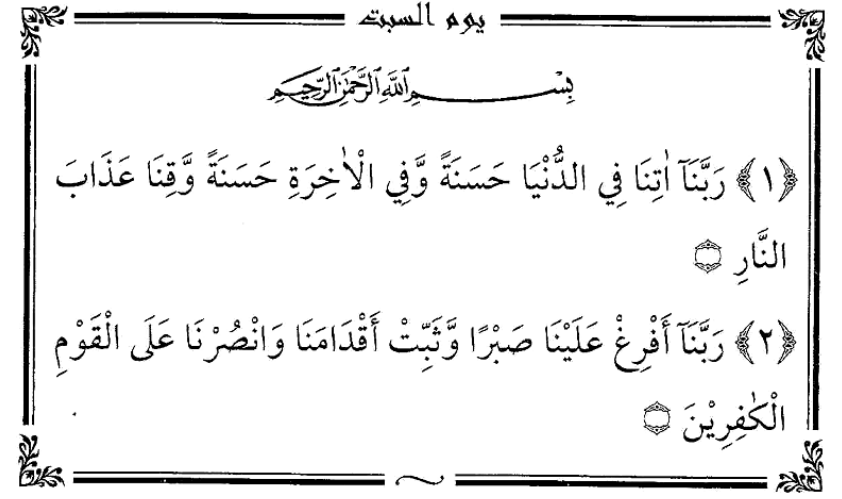 يوم السبت
بِسْمِ ٱللَّهِ ٱلرَّحْمَٰنِ ٱلرَّحِيمِ
﴿١﴾ رَبَّنَآ اٰتِنَا فِي الدُّنْيَا حَسَنَةً وَّفِي الْاٰخِرَةِ حَسَنَةً وَّقِنَا عَذَابَ
النَّارِ ۝
﴿٢﴾ رَبَّنَآ أَفْرِغْ عَلَيْنَا صَبْرًا وَّثَبِّتْ أَقْدَامَنَا وَانْصُرْنَا عَلَى الْقَوْمِ
الْكٰفِرِيْنَ ۝